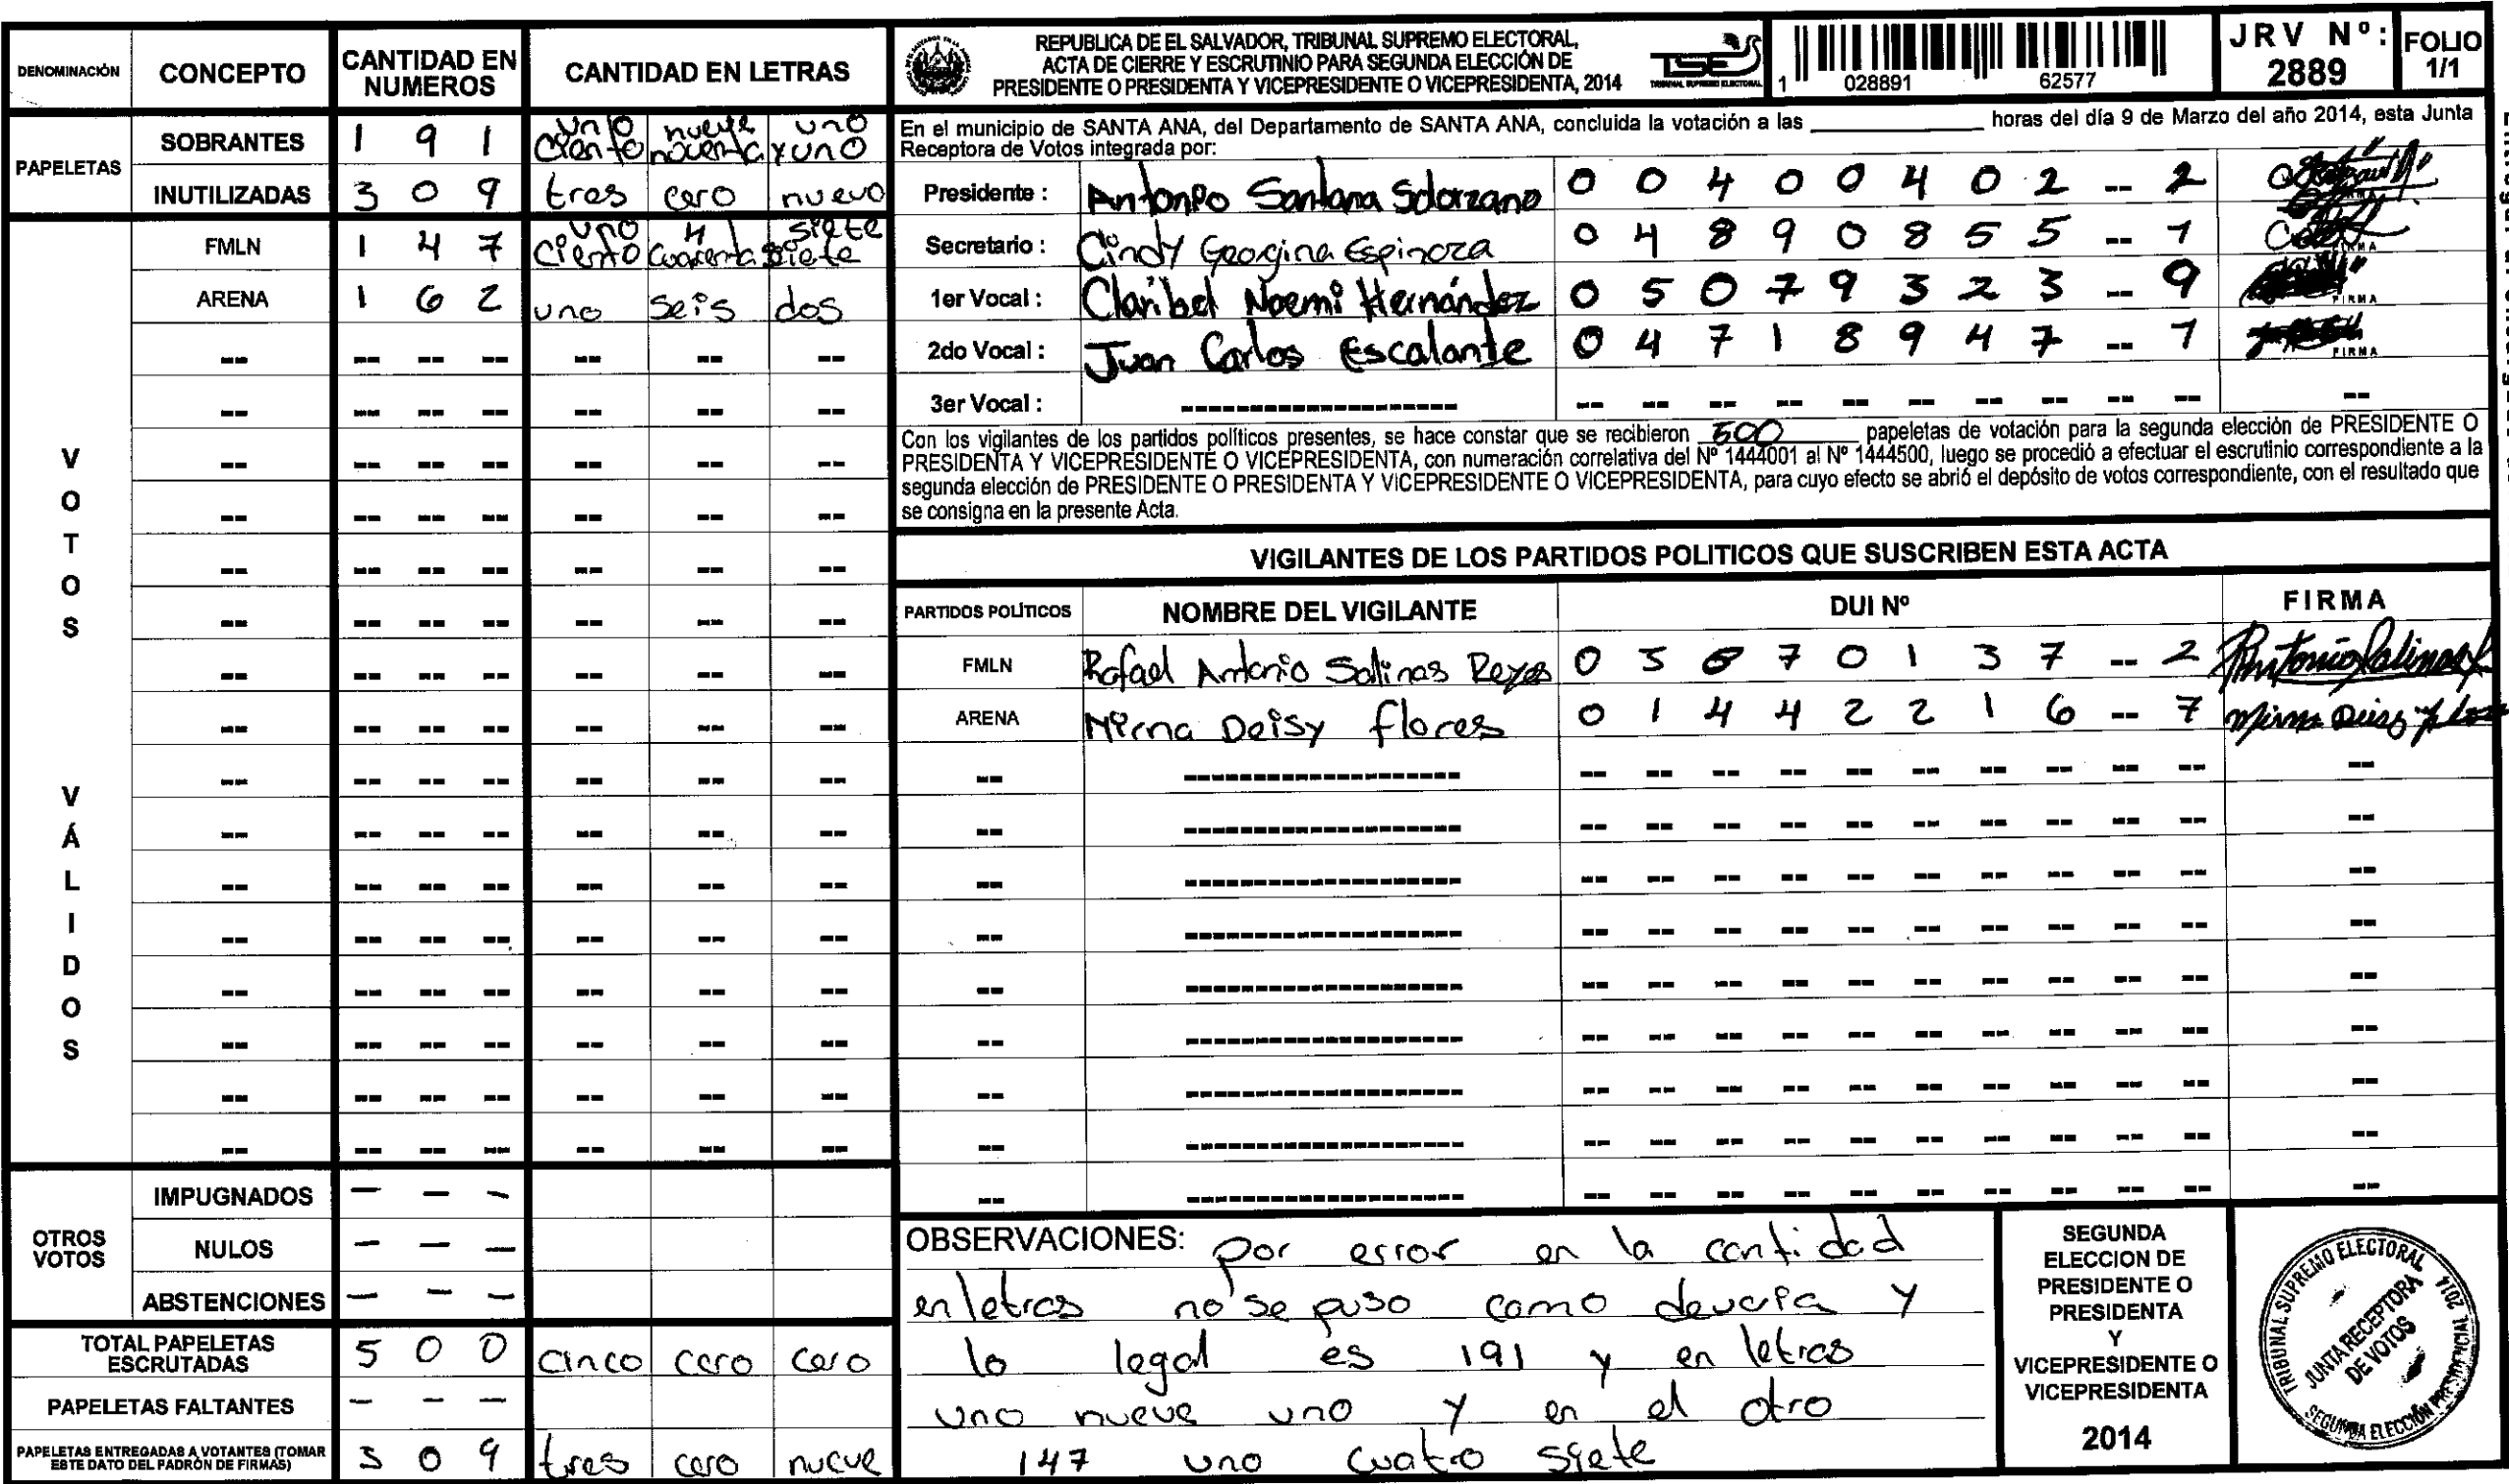 DENOMINACIÓN CONCEPTO CANTIDAD EN NUMEROS CANTIDAD EN LETRAS
PAPELETAS
SOBRANTES 1 9 1 uno nueve uno
ciento noventa y uno
INUTILIZADAS 3 0 9 tres cero nuevo
VOTOS VÁLIDOS
FMLN 1 4 7 uno 4 siete
ciento cuarenta siete
ARENA 1 6 2 uno seis dos
OTROS VOTOS
IMPUGNADOS — — —
NULOS — — —
ABSTENCIONES — — —
TOTAL PAPELETAS ESCRUTADAS 5 0 0 cinco cero cero
PAPELETAS FALTANTES — — —
PAPELETAS ENTREGADAS A VOTANTES (TOMAR ESTE DATO DEL PADRÓN DE FIRMAS) 3 0 9 tres cero nueve
REPUBLICA DE EL SALVADOR, TRIBUNAL SUPREMO ELECTORAL,
ACTA DE CIERRE Y ESCRUTINIO PARA SEGUNDA ELECCIÓN DE
PRESIDENTE O PRESIDENTA Y VICEPRESIDENTE O VICEPRESIDENTA, 2014
TSE
TRIBUNAL SUPREMO ELECTORAL
1 028891 62577
JRV Nº: 2889
FOLIO 1/1
En el municipio de SANTA ANA, del Departamento de SANTA ANA, concluida la votación a las ____ horas del día 9 de Marzo del año 2014, esta Junta
Receptora de Votos integrada por:
Presidente : Antonio Santana Solorzano 0 0 4 0 0 4 0 2 -- 2
Secretario : Cindy Georgina Espinoza 0 4 8 9 0 8 5 5 -- 1 FIRMA
1er Vocal : Claribel Noemi Hernández 0 5 0 7 9 3 2 3 -- 9 FIRMA
2do Vocal : Juan Carlos Escalante 0 4 7 1 8 9 4 7 -- 1 FIRMA
3er Vocal :
Con los vigilantes de los partidos políticos presentes, se hace constar que se recibieron 500 papeletas de votación para la segunda elección de PRESIDENTE O
PRESIDENTA Y VICEPRESIDENTE O VICEPRESIDENTA, con numeración correlativa del Nº 1444001 al Nº 1444500, luego se procedió a efectuar el escrutinio correspondiente a la
segunda elección de PRESIDENTE O PRESIDENTA Y VICEPRESIDENTE O VICEPRESIDENTA, para cuyo efecto se abrió el depósito de votos correspondiente, con el resultado que
se consigna en la presente Acta.
VIGILANTES DE LOS PARTIDOS POLITICOS QUE SUSCRIBEN ESTA ACTA
PARTIDOS POLÍTICOS NOMBRE DEL VIGILANTE DUI Nº FIRMA
FMLN Rafael Antonio Salinas Reyes 0 3 8 7 0 1 3 7 -- 2
ARENA Mirna Deisy flores 0 1 4 4 2 2 1 6 -- 7 Mirna Deisy flores
OBSERVACIONES: por error en la cantidad
en letras no se puso como deveria y
lo legal es 191 y en letras
uno nueve uno y en el otro
147 uno cuatro siete
SEGUNDA
ELECCION DE
PRESIDENTE O
PRESIDENTA
Y
VICEPRESIDENTE O
VICEPRESIDENTA
2014
TRIBUNAL SUPREMO ELECTORAL 2014
JUNTA RECEPTORA
DE VOTOS
SEGUNDA ELECCIÓN PRESIDENCIAL